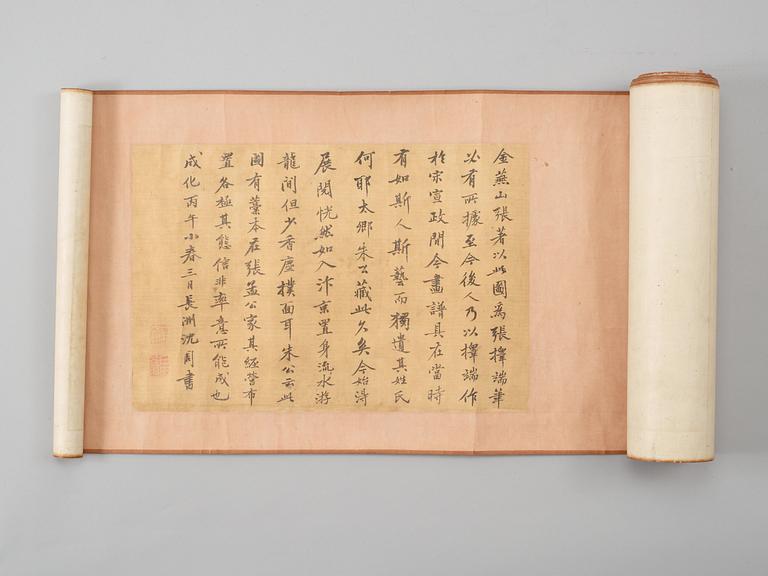 金燕山張著以此圖為張擇端筆
必有所據至今後人乃以擇端作
於宗宣政間今畫譜具在當時
有如斯人斯藝而獨遺其姓氏
何耶太卿朱公藏此久矣今始得
展閱恍然如入汴京置身流水游
龍間但少香塵撲面耳朱公云此
圖有藁本在張孟公家其經營布
置各極其態信非率意所能成也
成化丙午小春三日長洲沈周書